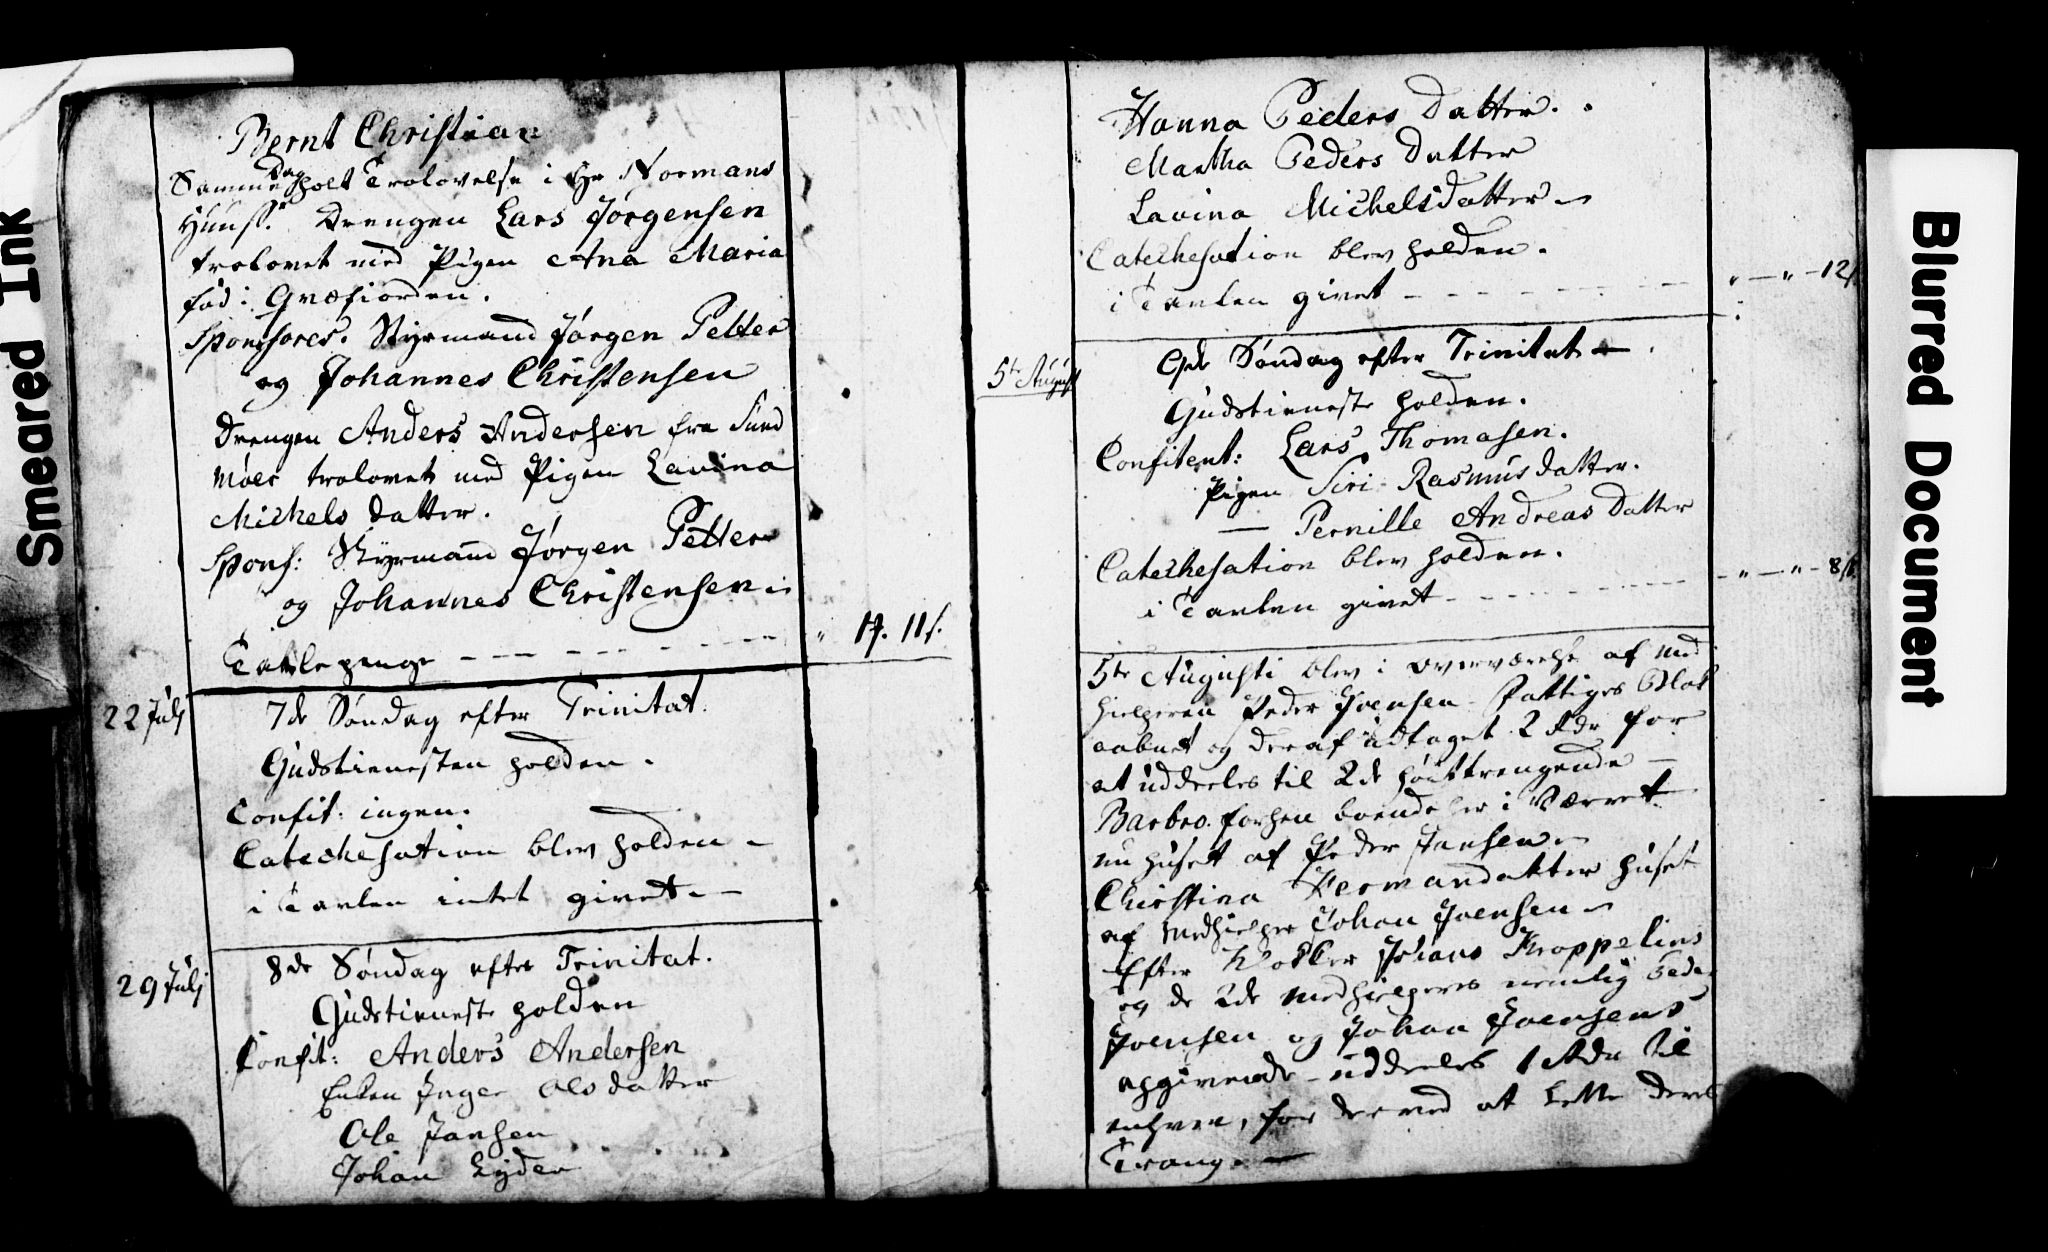 Smeared Ink
Bernt Christian
Samme Dag holt Trolovelse i Hr Normans
Huus: Drengen Lars Jørgensen
trolovet med Pigen Ana Maria
fød i Græfiorden.
Sponsores. Styrmand Jørgen Petter
og Johannes Christensen
Drengen Anders Andersen fra Sund
møer trolovet med Pigen Lavina
Michels datter.
Spons: Styrmand Jørgen Petter
og Johannes Christensen
Tavlepenge - - - - " 11 s.
22 Julj
7de Søndag efter Trinitat.
Gudstienesten holden.
Confit: ingen.
Catechesation blev holden -
i Tavlen intet givet. -
29 Julj
8de Søndag efter Trinitat.
Gudstieneste holden
Confit: Anders Andersen
Enken Inger Olsdatter
Ole Jansen
Johan Lyder
Hanna Peders Datter.
Martha Peders Datter
Lavina Michelsdatter
Catechesation blev holden.
i Tavlen givet - - - - " - " - 12 s
5te August
9de Søndag efter Trinitat
Gudstieneste holden.
Confitent: Lars Thomasen.
Pigen Siri Rasmusdatter.
— Pernille Andreas Datter
Catechesation blev holden.
i Tavlen givet - - - - " - " - 8 s
5te Augusti blev i overværelse af Med
hielperen Peder Joensen Fattiges Blok
aabnet og deraf udtaget 2 Rdr for
at uddeeles til 2de høittrengende -
Barbro forhen boende her i Været
nu huset af Peder Jansen
Christina Hermandatter huset
af Medhielper Johan Joensen
Efter Klokker Johans Kroppelins
og de 2de Medhielperes nemlig Peder
Joensen og Johan Joensens
opgivende uddeeles 1 Rdr til
enhver, for derved at lette deres
Trang. —
Blurred Document